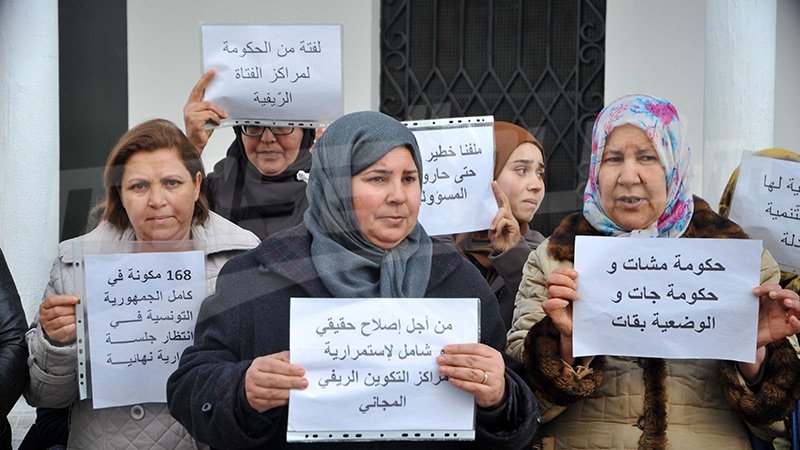 لفتة من الحكومة
لمراكز الفتاة
الرّيفية
ملفنا خطير
حتى
168 مكونة في
كامل الجمهورية
التونسية في
انتظار جلسة
نهائية
من أجل إصلاح حقيقي
شامل لإستمرارية
مراكز التكوين الريفي
المجاني
حكومة مشات و
حكومة جات و
الوضعية بقات
لها